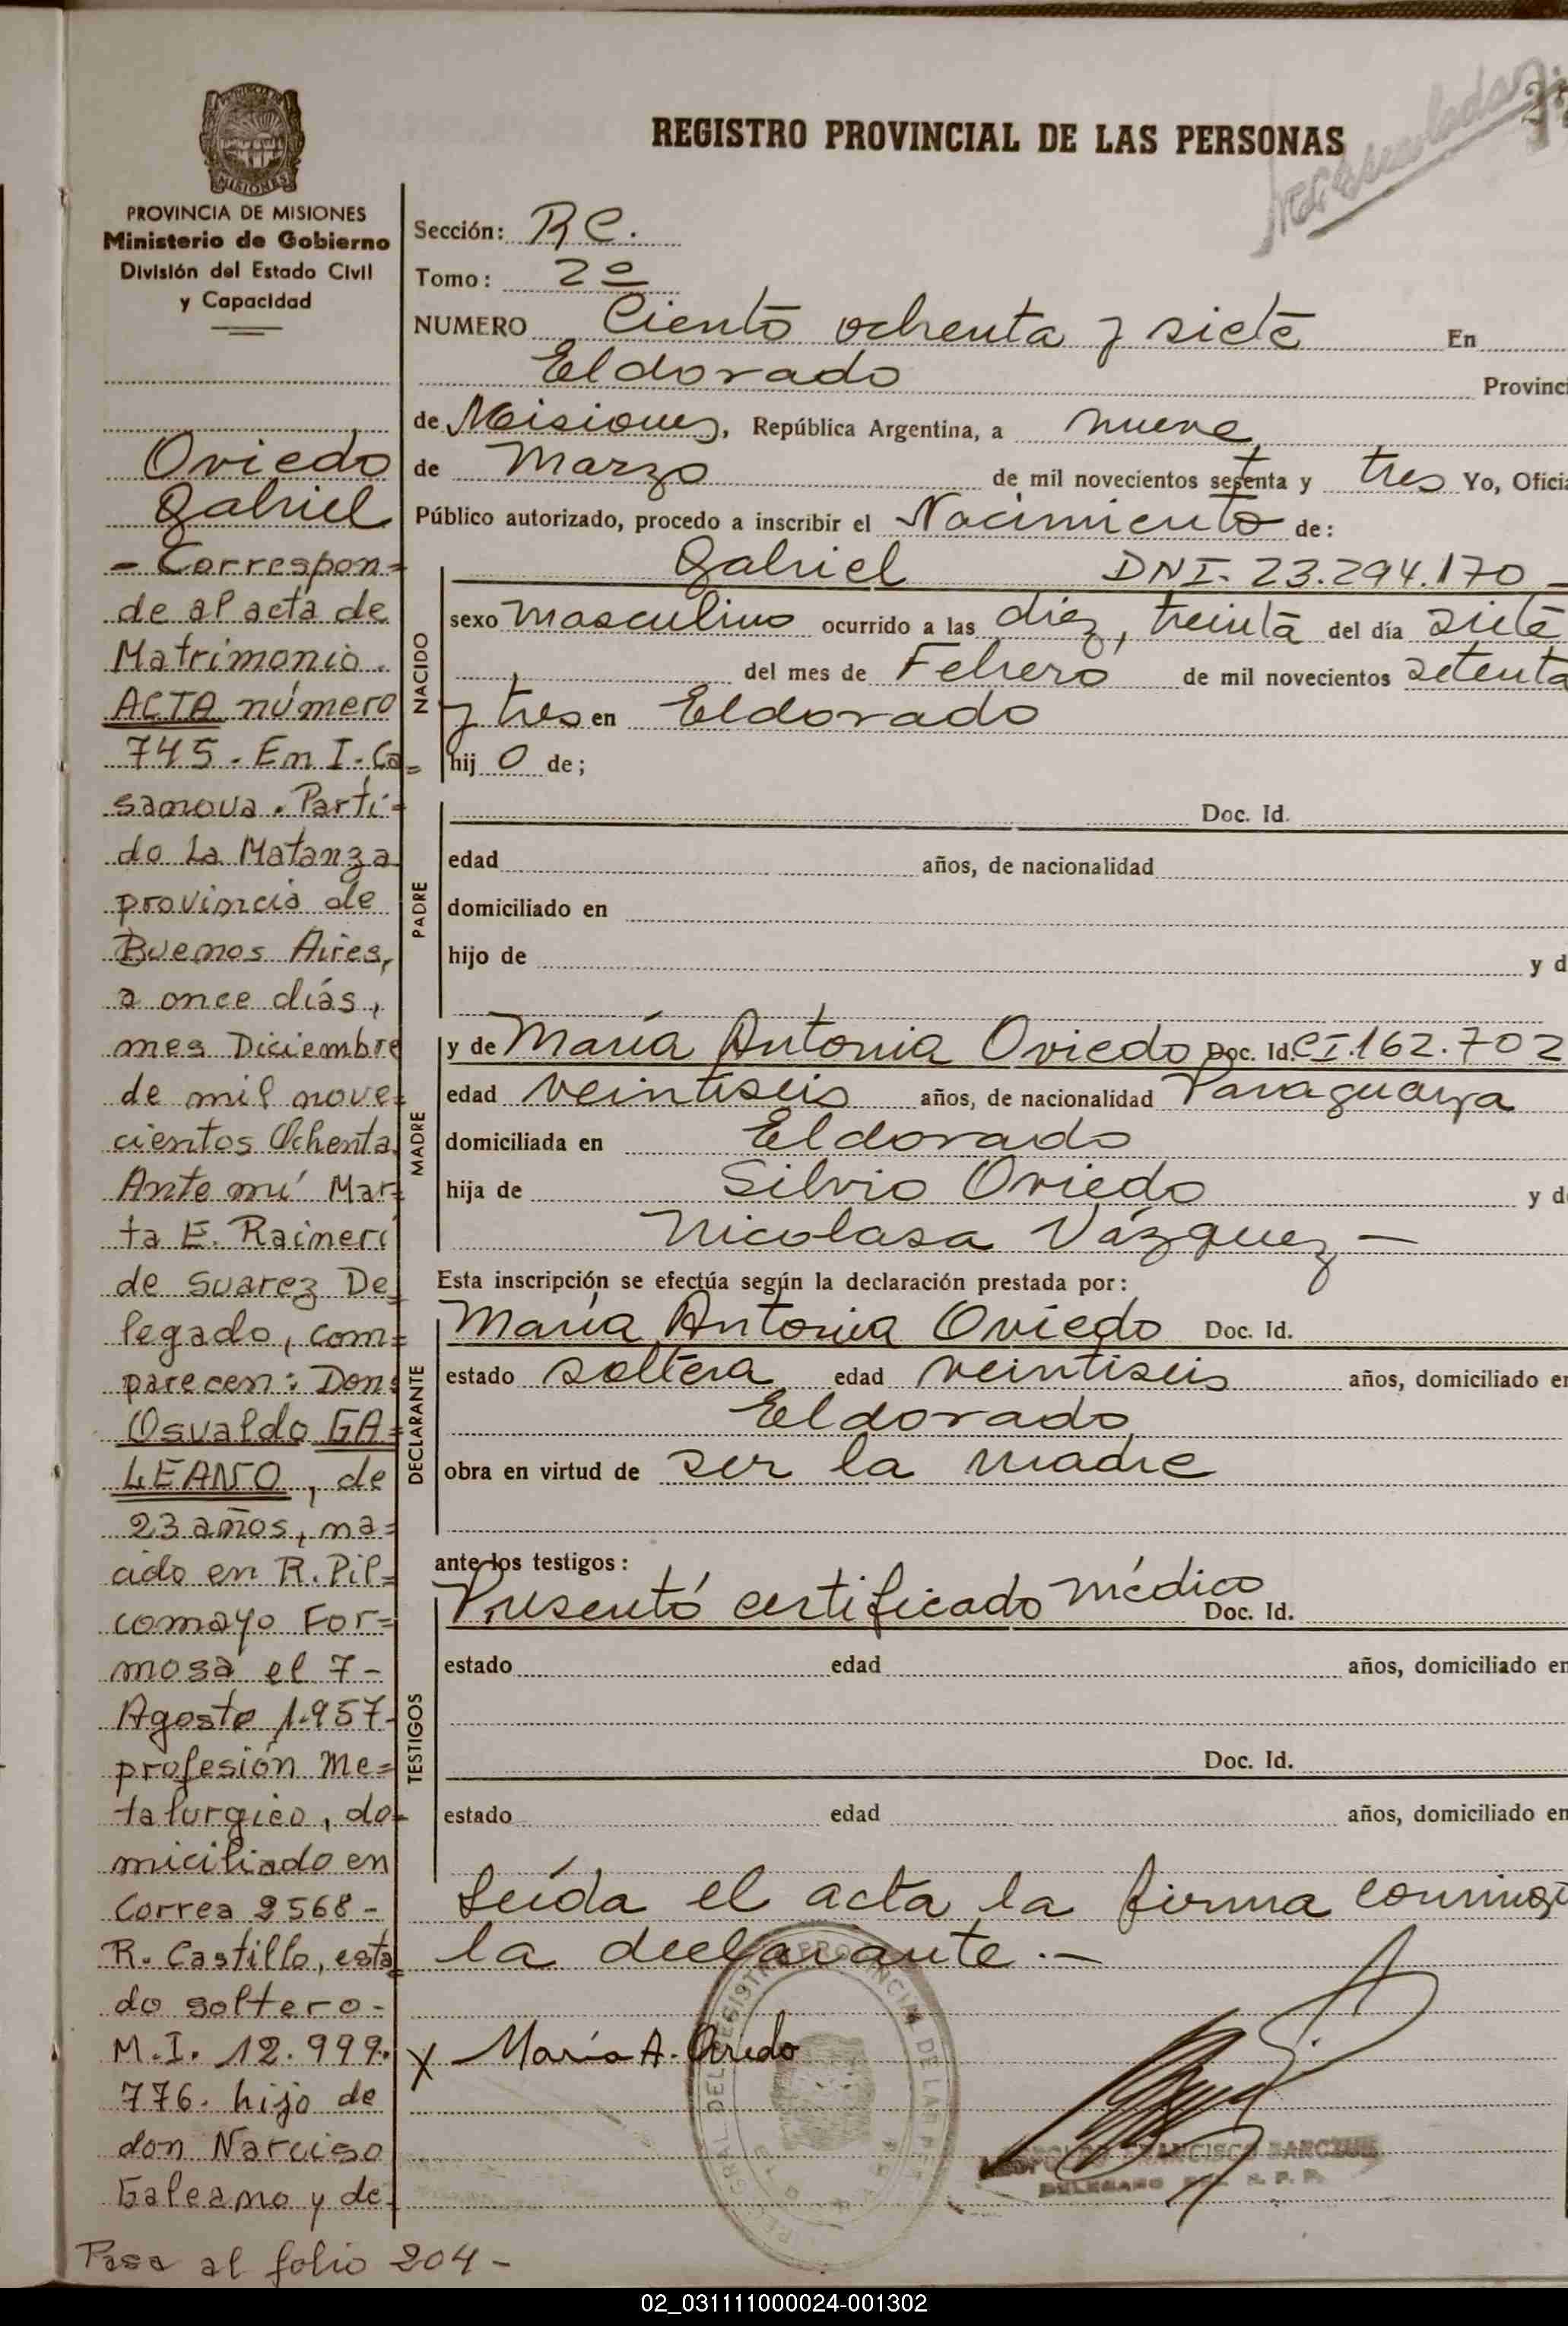 REGISTRO PROVINCIAL DE LAS PERSONAS
MISIONES
PROVINCIA DE MISIONES
Ministerio de Gobierno
División del Estado Civil
y Capacidad
Oviedo
Gabriel
- Correspon=
de al acta de
Matrimonio.
ACTA número
745. En I. Ca=
sanova. Parti=
do La Matanza
provincia de
Buenos Aires,
a once días,
mes Diciembre
de mil nove=
cientos Ochenta
Ante mí Mar=
ta E. Raineri
de Suarez De=
legado, com=
parecen: Don=
Osvaldo GA=
LEANO, de
23 años, na=
cido en R. Pil=
comayo For=
mosa el 7-
Agosto 1.957-
profesión Me=
talurgico, do=
miciliado en
Correa 2568-
R. Castillo, esta=
do soltero-
M.I. 12.999.
776. hijo de
don Narciso
Galeano y de-
Pasa al folio 204-
Sección: RC.
Tomo: 2º
NUMERO Ciento ochenta y siete En
Eldorado Provinci
de Misiones, República Argentina, a nueve
de Marzo de mil novecientos setenta y tres Yo, Oficia
Público autorizado, procedo a inscribir el Nacimiento de:
NACIDO
Gabriel DNI. 23.294.170 -
sexo masculino ocurrido a las diez, treinta del día siete
del mes de Febrero de mil novecientos setenta
y tres en Eldorado
hij o de;
PADRE
Doc. Id.
edad años, de nacionalidad
domiciliado en
hijo de y d
MADRE
y de María Antonia Oviedo Doc. Id. CI.162.702
edad veintiseis años, de nacionalidad Paraguaya
domiciliada en Eldorado
hija de Silvio Oviedo y d
Nicolasa Vázquez -
Esta inscripción se efectúa según la declaración prestada por:
DECLARANTE
María Antonia Oviedo Doc. Id.
estado soltera edad veintiseis años, domiciliado en
Eldorado
obra en virtud de ser la madre
ante los testigos:
TESTIGOS
Presentó certificado médico Doc. Id.
estado edad años, domiciliado en
Doc. Id.
estado edad años, domiciliado en
Leída el acta la firma conmigo
la declarante.-
X María A. Oviedo
FRANCISCO
DELEGADO DEL R. P. P.
02_031111000024-001302